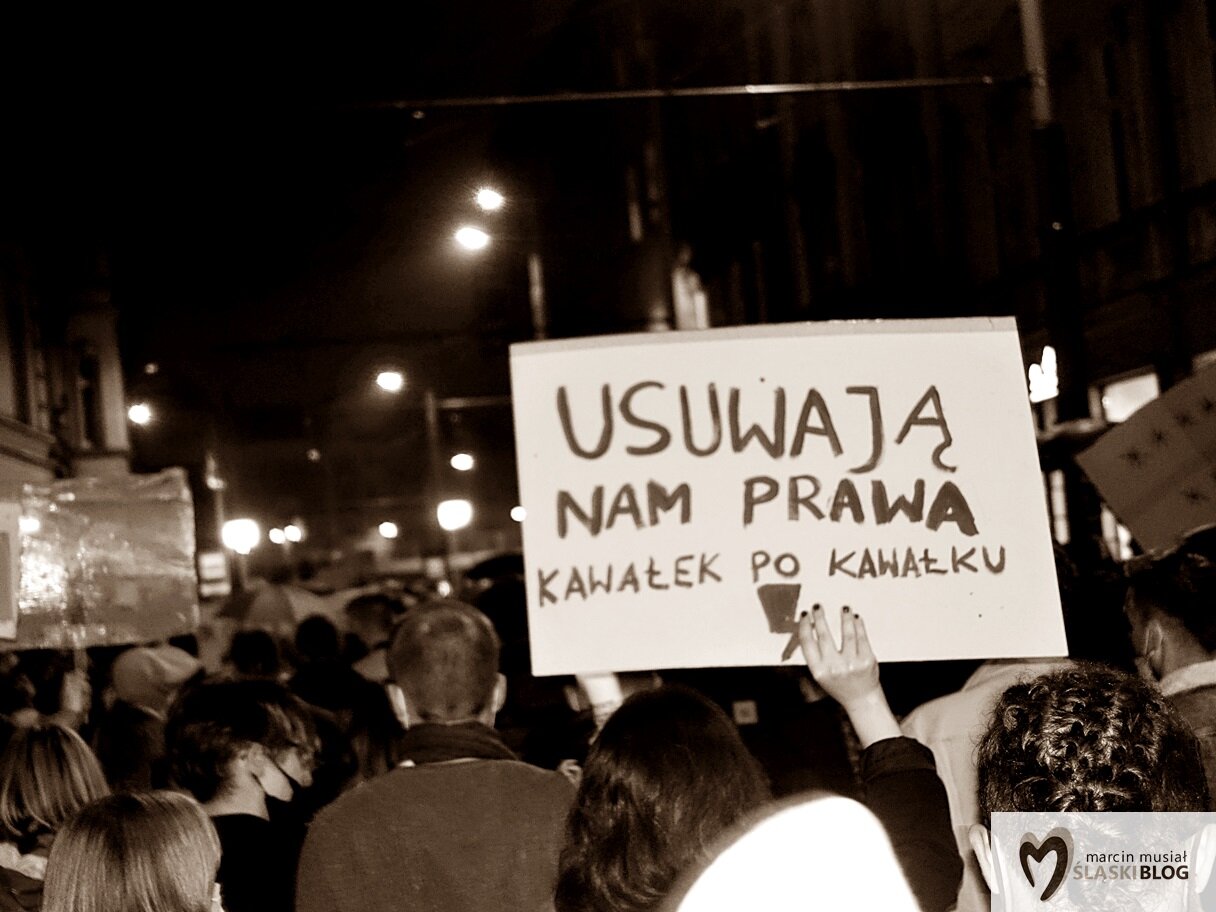 USUWAJĄ
NAM PRAWA
KAWAŁEK PO KAWAŁKU
marcin musiał
ŚLĄSKIBLOG